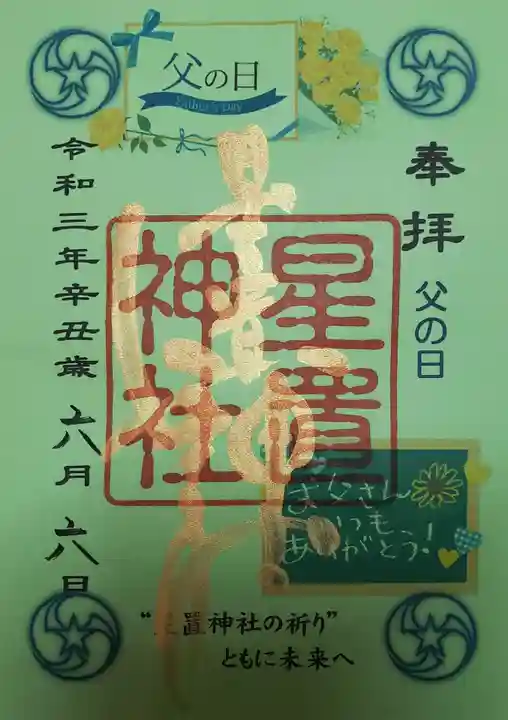 父の日
Father's Day
奉拝
父の日
星置
神社
お父さん
いつも
ありがとう!
令和三年辛丑歳 六月 六日
"星置神社の祈り"
ともに未来へ